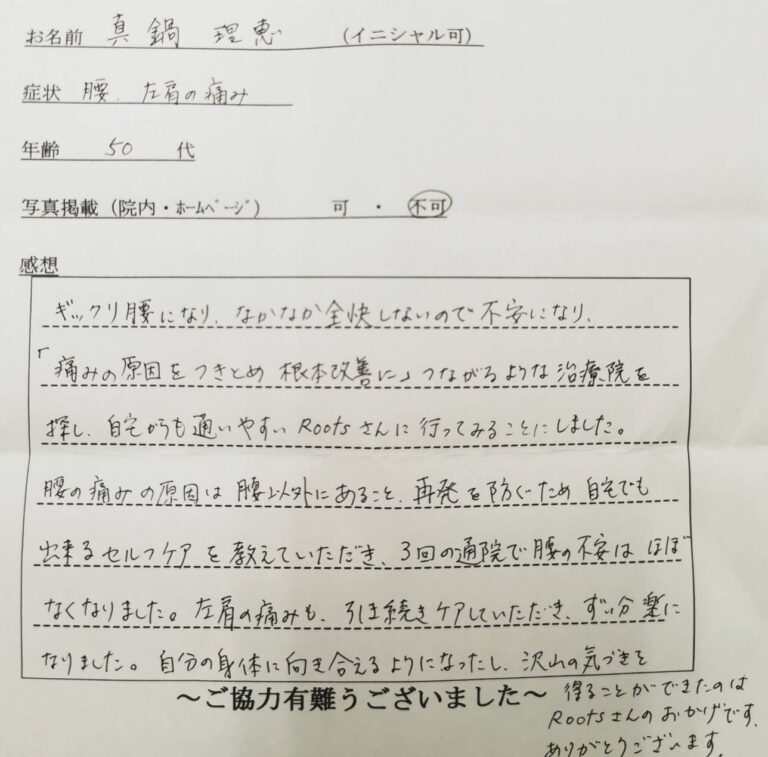 お名前 真鍋 理恵 (イニシャル可)
症状 腰、左肩の痛み
年齢 50 代
写真掲載 (院内・ホームページ) 可 ・ 不可
感想
ギックリ腰になり、なかなか全快しないので不安になり、
「痛みの原因をつきとめ 根本改善に」つながるような治療院を
探し、自宅からも通いやすいRootsさんに行ってみることにしました。
腰の痛みの原因は腰以外にあること、再発を防ぐため自宅でも
出来るセルフケアを教えていただき、3回の通院で腰の不安はほぼ
なくなりました。左肩の痛みも、引き続きケアしていただき、ずい分楽に
なりました。自分の身体に向き合えるようになったし、沢山の気づきを
〜ご協力有難うございました〜
得ることができたのは
Rootsさんのおかげです。
ありがとうございます。